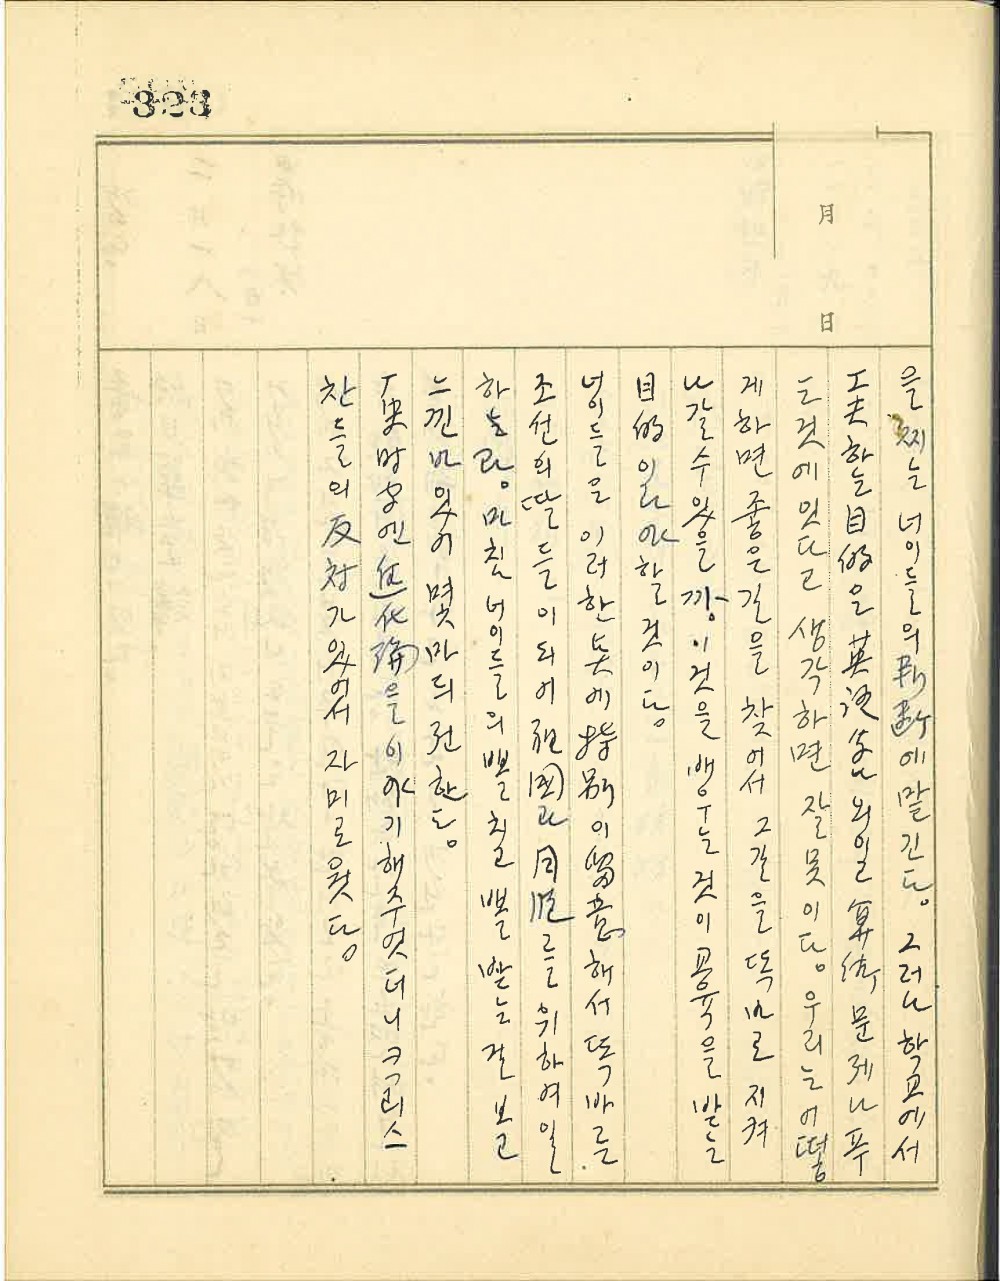 323
月 日
을 찌는 너이들의 判斷에 맡긴다. 그러나 학교에서
工夫하는 目的을 英語 單어 외일 算術 문제나 푸
는것에 잇다고 생각하면 잘못이다. 우리는 어떻
게 하면 좋은길을 찾어서 그길을 똑바로 지켜
나갈수 있을까 이것을 배우는 것이 공육을 받는
目的일라야 할 것이다.
너이들은 이러한 點에 特別이 留意해서 똑바른
조선의딸들이되어 祖國과 同胞를 위하여 일
하는라. 마침 너이들의 뺄 칠고 뺄 받는 걸 보고
느낀바있어 몇마듸 전한다.
下夬時 엔 進化論을 이야기해주엇더니 크리스
찬들의 反対가 있어서 자미로웟다.